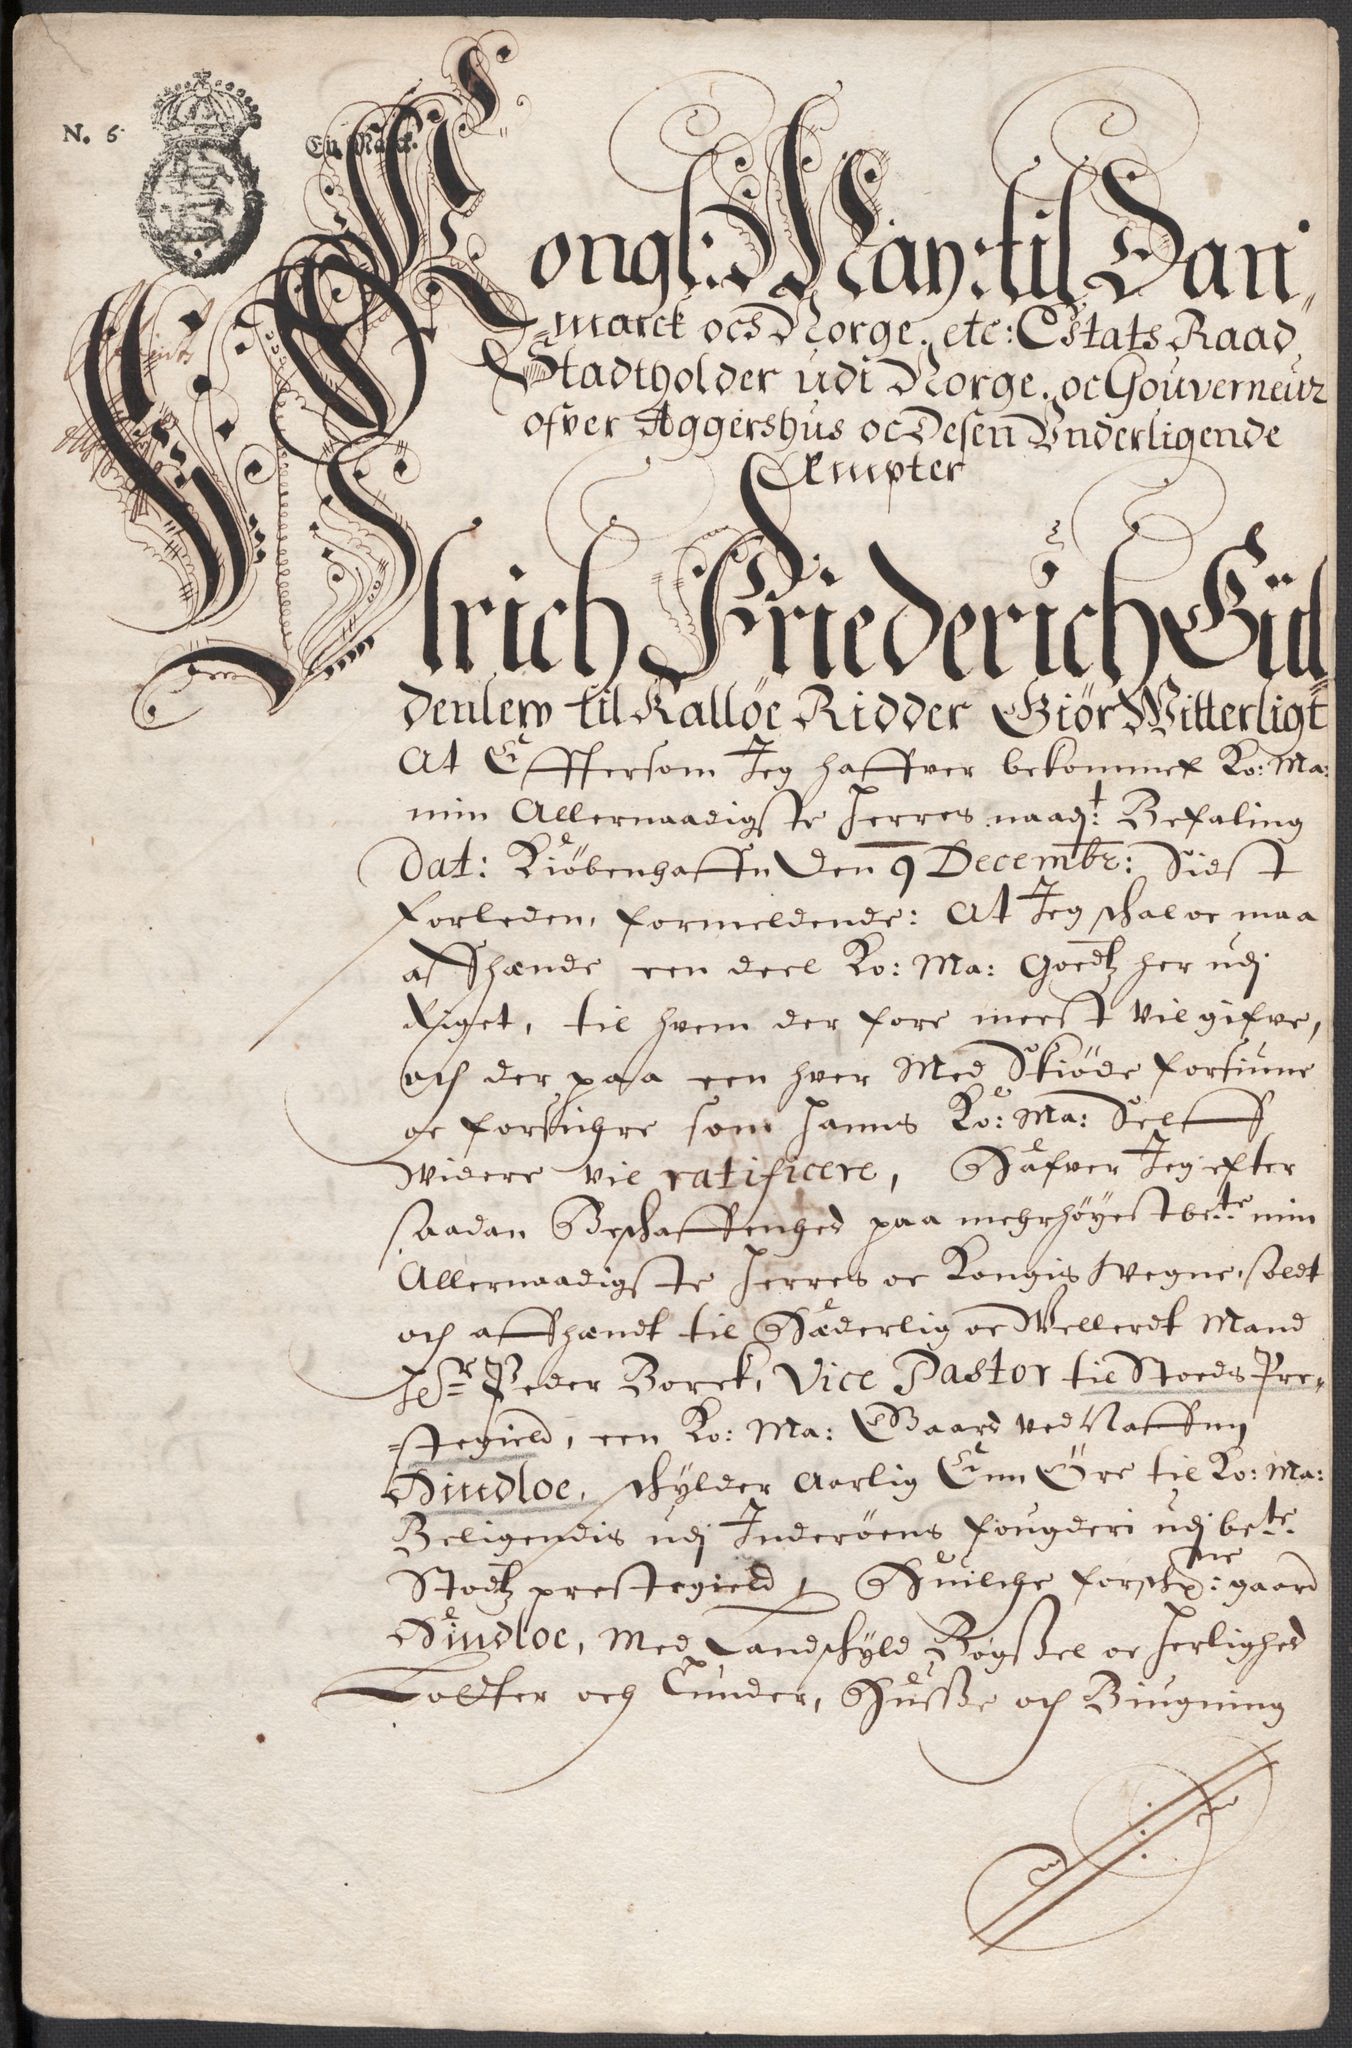 N. 6.
En Marck.
Kongl: May: til Dan„
marck och Norge. etc: Estats Raad
Stadtholder udi Norge. oc Gouverneur
ofver Aggershus oc Desen Underligende
Æmpter
Ulrich Friederich Gül
denlew til Kalløe Ridder Giör Witterligt
At Effttersom Jeg haffver bekommet Ko: Ma:
min Allernaadigste Herres naad:t Befaling
Dat: Kiöbenhaffn Den 9 Decembr: Sidst
forleden, formeldende: At Jeg schal oc maa
affhænde een deel Ko: Ma: Goedtz her udj
Riget, til hvem der fore meest vil gifve,
och der paa een hver Med Skiöde forsiune
oc forsichre som Hanns Ko: Ma: Selff
Widere vil ratificere, Hafver Jeg efter
saadan Beschaffenhed paa mehrhöyestbete: min
Allernaadigste Herres oc Kongis Wegne, soldt
och affhændt til Hæderlig oc Wellerdt Mand
Hr: Peder Borck, Vice Pastor til Stoeds Pre„
stegield, een Ko: Ma: Gaard ved Naffny
Hindloe, schylder Aarlig Enn Öre til Ko: Ma:
Beligendis udj Inderöens fougderi udj bete:
Stodtz prestegield, Huilche forschr:ne gaard
Hindloe, Med Landschyld Bögszel oc Herlighed
Lotter och Lunder, Husse och Biugning